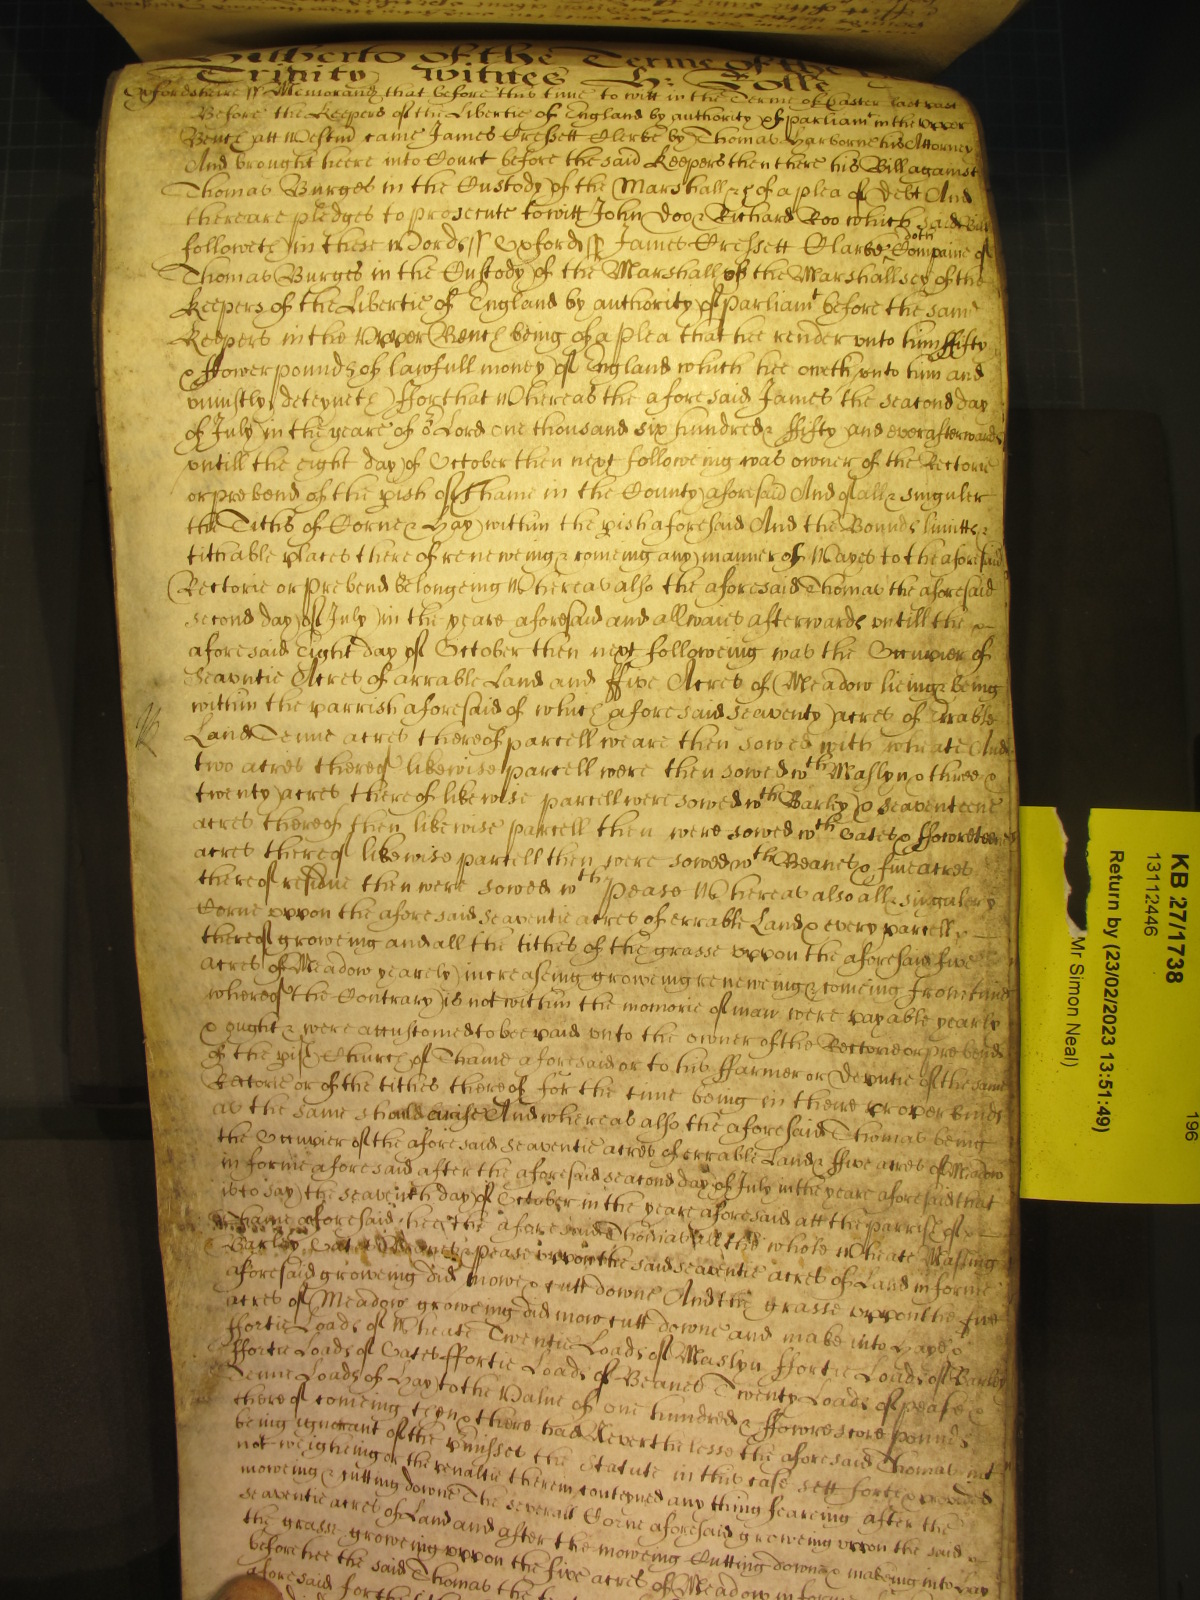 Hitherto of the Terme of the
Trinity Witnes H: Rolle
Oxfordsheire ss Memorand that before this time to witt in the Terme of Easter last past
Before the Keepers of the Libertie of England by authority of parliamt in the upper
Bench att Westm came James Clerke by Thomas Harborne his Attorney
And brought heere into Court before the said Keepers then there his Bill against
Thomas Burges in the Custody of the Marshall &c of a plea of Debt And
there are pledges to prosecute to witt John Doo & Richard Roo which said Bill
followeth in these words ss Oxford ss James Clarke doth Complaine of
Thomas Burges in the Custody of the Marshall of the Marshallsey of the
Keepers of the Libertie of England by authority of Parliamt before the same
Keepers in the Upper Bench being of a plea that hee render unto him ffifty
& ffower pounds of lawfull money of England which hee oweth unto him and
uniustly deteyneth ffor that Whereas the aforesaid James the second day
of July in the yeare of or Lord one thousand six hundred & ffifty and ever afterwards
untill the eight day of October then next followeing was owner of the Rectorie
or prebend of the pish of Thame in the County aforesaid And of all & singuler
the Tithes of Corne & Hay within the pish aforesaid And the Bounds limitts &
tithable places there of reneweing & comeing any manner of Wayes to the aforesaid
Rectorie or Prebend Belongeing Whereas also the aforesaid Thomas the aforesaid
second day of July in the yeare aforesaid and allwaies afterwards untill the
aforesaid Eight day of October then next followeing was the Occupier of
Seaventie Acres of arrable Land and ffive Acres of Meadow lieing & being
within the parrish aforesaid of which aforesaid seaventy acres of Errable
Land Tenne acres thereof parcell weare then sowed with wheate And
two acres thereof likewise parcell were then sowed wth Maslyn & three &
twenty acres there of likewise parcell were sowed wth Barley & seaventeene
acres thereof then likewise parcell then were sowed wth Oates & ffowreteene
acres thereof likewise parcell then were sowed wth Beanes & five acres
thereof residue then were sowed wth Pease Whereas also all & singuler
Corne uppon the aforesaid seaventie acres of errable Land & every parcell
thereof groweing and all the tithes of the grasse uppon the aforesaid five
acres of Meadow yearely increaseing groweing reneweing & comeing from time
whereof the Contrary is not within the memorie of man were payable yearly
& ought & were accustomed to bee paid unto the owner of the Rectorie or prebend
of the pish Church of Thame aforesaid or to his ffarmer or Deputie of the same
Rectorie or of the tithes thereof for the time being in theire propper kinds
as the same should arise And whereas also the aforesaid Thomas being
the Occupier of the aforesaid seaventie acres of errable Land & ffive acres of Meadow
in forme aforesaid after the aforesaid second day of July in the yeare aforesaid that
is to say the seaventh day of October in the yeare aforesaid att the parrish of
Thame aforesaid hee the aforesaid Thomas all the whole Wheate Masling
Barley Oates Beanes & pease uppon the said seaventie acres of Land in forme
aforesaid groweing did mowe & cutt downe And the grasse uppon the five
acres of Meadow groweing did mow cutt downe and make into Haye &
ffortie Loads of Wheate Twentie Loads of Maslyn ffortie Loads of Barley
ffortie Loads of Oates ffortie Loads of Beanes Twenty Loads of pease &
Tenne Loads of Hay to the Value of one hundred & ffowrescore pounds
thereof comeing then & there had Neverthelesse the aforesaid Thomas not
being ignorant of the the Statute in this case sett forth & provided
not weigheing or the penaltie therein conteyned any thing feareing after the
moweing & cutting downe The severall Corne aforesaid groweing uppon the said
seaventie acres of Land and after the moweing Cutting downe & makeing into Hay
the grasse groweing uppon the five acres of Meadow in forme
before hee the said Thomas the
aforesaid
KB 27/1738
13112446
Return by (23/02/2023 13:51:49)
Mr Simon Neal)
196